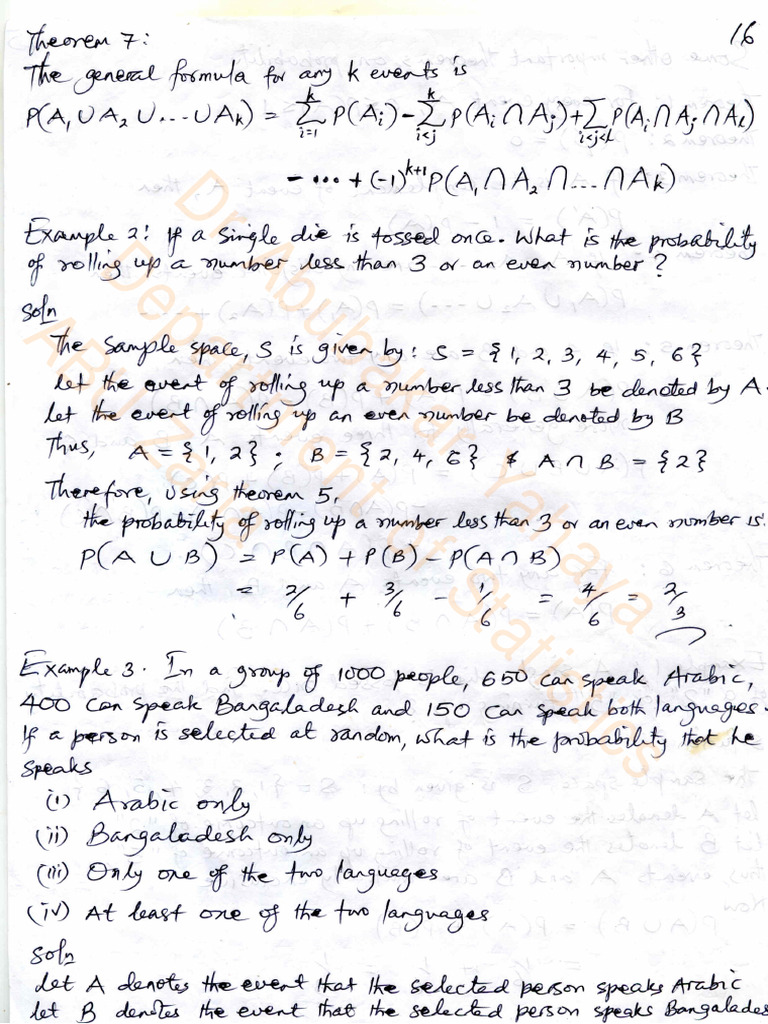 16
Theorem 7:
The general formula for any k events is
P(A₁ ∪ A₂ ∪ ... ∪ Aₖ) = ∑ᵢ₌₁ᵏ P(Aᵢ) - ∑ᵢ<ⱼᵏ P(Aᵢ ∩ Aⱼ) + ∑ᵢ<ⱼ<ₗ P(Aᵢ ∩ Aⱼ ∩ Aₗ)
- ... + (-1)ᵏ⁺¹ P(A₁ ∩ A₂ ∩ ... ∩ Aₖ)
Example 2: If a single die is tossed once. What is the probability
of rolling up a number less than 3 or an even number?
Soln
The sample space, S is given by: S = {1, 2, 3, 4, 5, 6}
Let the event of rolling up a number less than 3 be denoted by A.
Let the event of rolling up an even number be denoted by B
Thus, A = {1, 2}; B = {2, 4, 6} & A ∩ B = {2}
Therefore, using theorem 5,
the probability of rolling up a number less than 3 or an even number is:
P(A ∪ B) = P(A) + P(B) - P(A ∩ B)
= 2/6 + 3/6 - 1/6 = 4/6 = 2/3
Example 3. In a group of 1000 people, 650 can speak Arabic,
400 can speak Bangaladesh and 150 can speak both languages.
If a person is selected at random, what is the probability that he
speaks
(i) Arabic only
(ii) Bangaladesh only
(iii) Only one of the two languages
(iv) At least one of the two languages
Soln
Let A denotes the event that the selected person speaks Arabic
Let B denotes the event that the selected person speaks Bangalades
Dr. Abubakar Yahaya
Department of Statistics
ABU Zaria